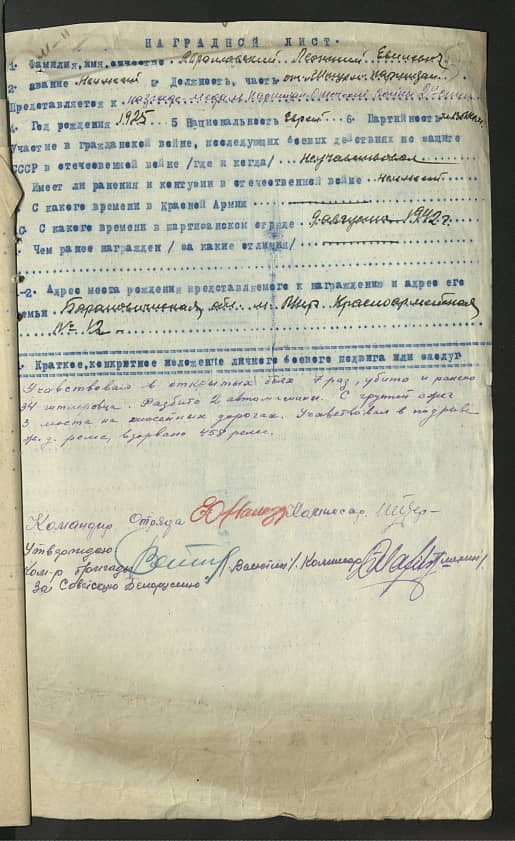 НАГРАДНОЙ ЛИСТ.
1. Фамилия, имя, отчество Абрамовский Леонтий Евнович
2. звание Неимеет 3. Должность, часть
Представляется к награде медаль Партизан Отечеств. войны 2й степ.
4. Год рождения 1925. 5 Национальность Еврей 6. Партийность чл. ВЛКСМ
Участие в гражданской войне, последующих боевых действиях по защите
СССР в отечественной войне /Где и когда/ Неучаствовал
Имеет ли ранения и контузии в отечественной войне неимеет
С какого времени в Красной Армии
10. С какого времени в партизанском отряде 9. августа 1942 г.
Чем ранее награжден /за какие отличия/
1-2. Адрес места рождения представляемого к награждению и адрес его
семьи Барановичская обл. м. Мир Красноармейская
№ 12.
Краткое, конкретное изложение личного боевого подвига или заслуг
Учавствовал в открытых боях 7 раз, убито и ранено
34 гитлеровца. Разбито 2 автомашины. С группой сжег
3 моста на шосейных дорогах. Учавствовал в подрыве
ж.д. рельс, взорвано 458 рельс.
Командир Отряда Комиссар
Утвверждаю
Ком-р бригады Комиссар
За Советскую Белоруссию